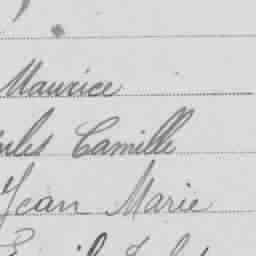 Maurice
Camille
Jean Marie